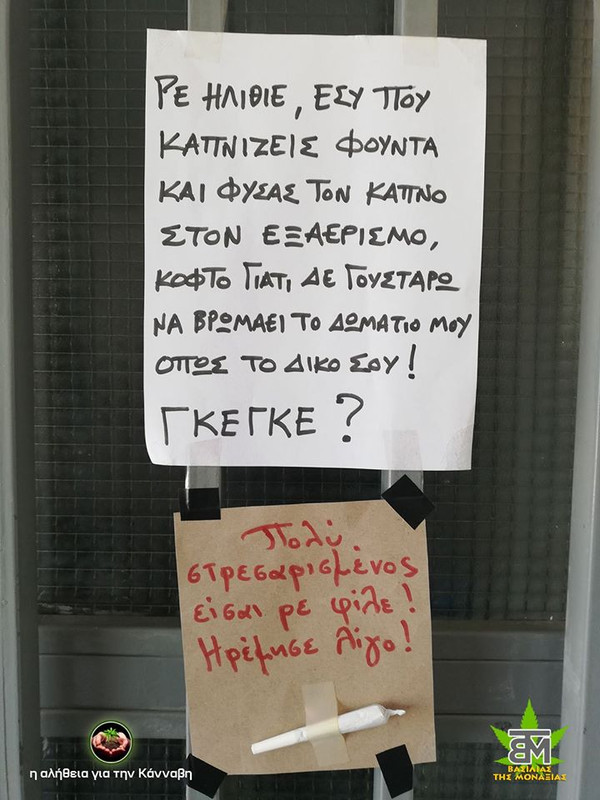 ΡΕ ΗΛΙΘΙΕ, ΕΣΥ ΠΟΥ
ΚΑΠΝΙΖΕΙΣ ΦΟΥΝΤΑ
ΚΑΙ ΦΥΣΑΣ ΤΟΝ ΚΑΠΝΟ
ΣΤΟΝ ΕΞΑΕΡΙΣΜΟ,
ΚΟΦΤΟ ΓΙΑΤΙ ΔΕ ΓΟΥΣΤΑΡΩ
ΝΑ ΒΡΩΜΑΕΙ ΤΟ ΔΩΜΑΤΙΟ ΜΟΥ
ΟΠΩΣ ΤΟ ΔΙΚΟ ΣΟΥ!
ΓΚΕΓΚΕ?
Πολύ
στρεσαρισμένος
είσαι ρε φίλε!
Ηρέμησε λίγο!
η αλήθεια για την Κάνναβη
ΒΤΜ
ΒΑΣΙΛΙΑΣ
ΤΗΣ ΜΟΝΑΞΙΑΣ